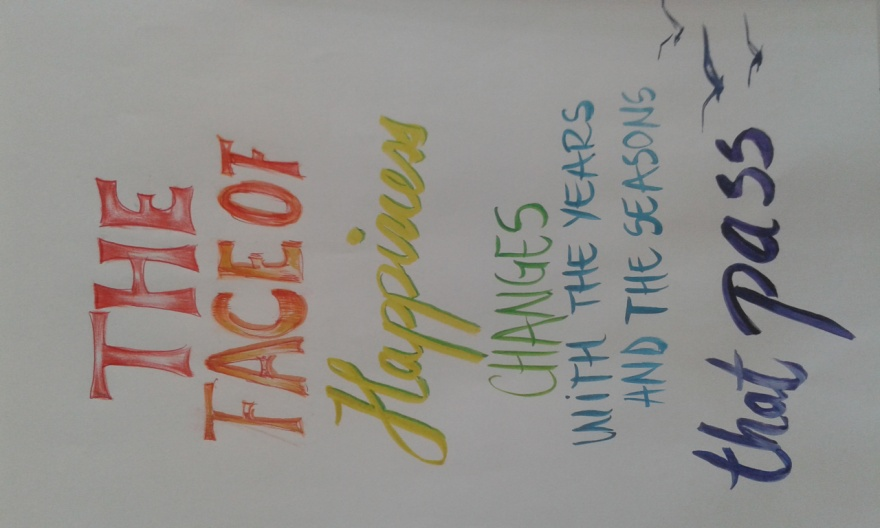 THE
FACE OF
Happiness
CHANGES
WiTH THE YEARS
AND THE SEASONS
that pass